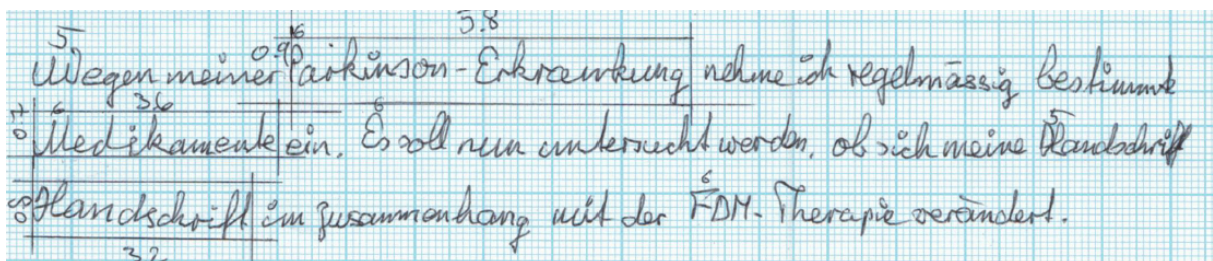 5. 0.9 6 5.8
Wegen meiner Parkinson-Erkrankung nehme ich regelmässig bestimmte
6 3.6 6 5
Medikamente ein. Es soll nun untersucht werden, ob sich meine Handschrift
6
Handschrift im Zusammenhang mit der FDM-Therapie verändert.
3.2